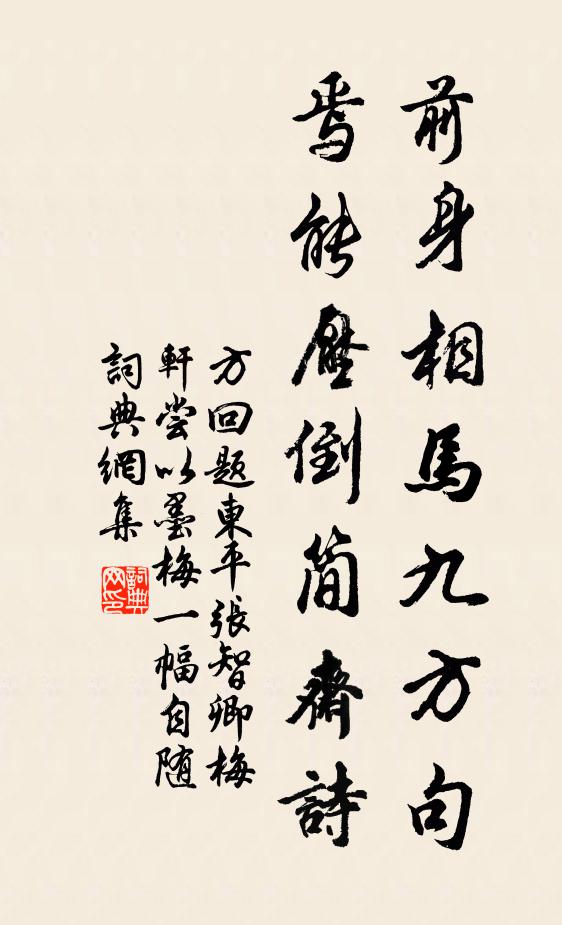 前身相馬九方句
焉能壓倒簡齋詩
方回題東平張智卿梅
軒嘗以墨梅一幅自随
詞典網集
詞典
网印